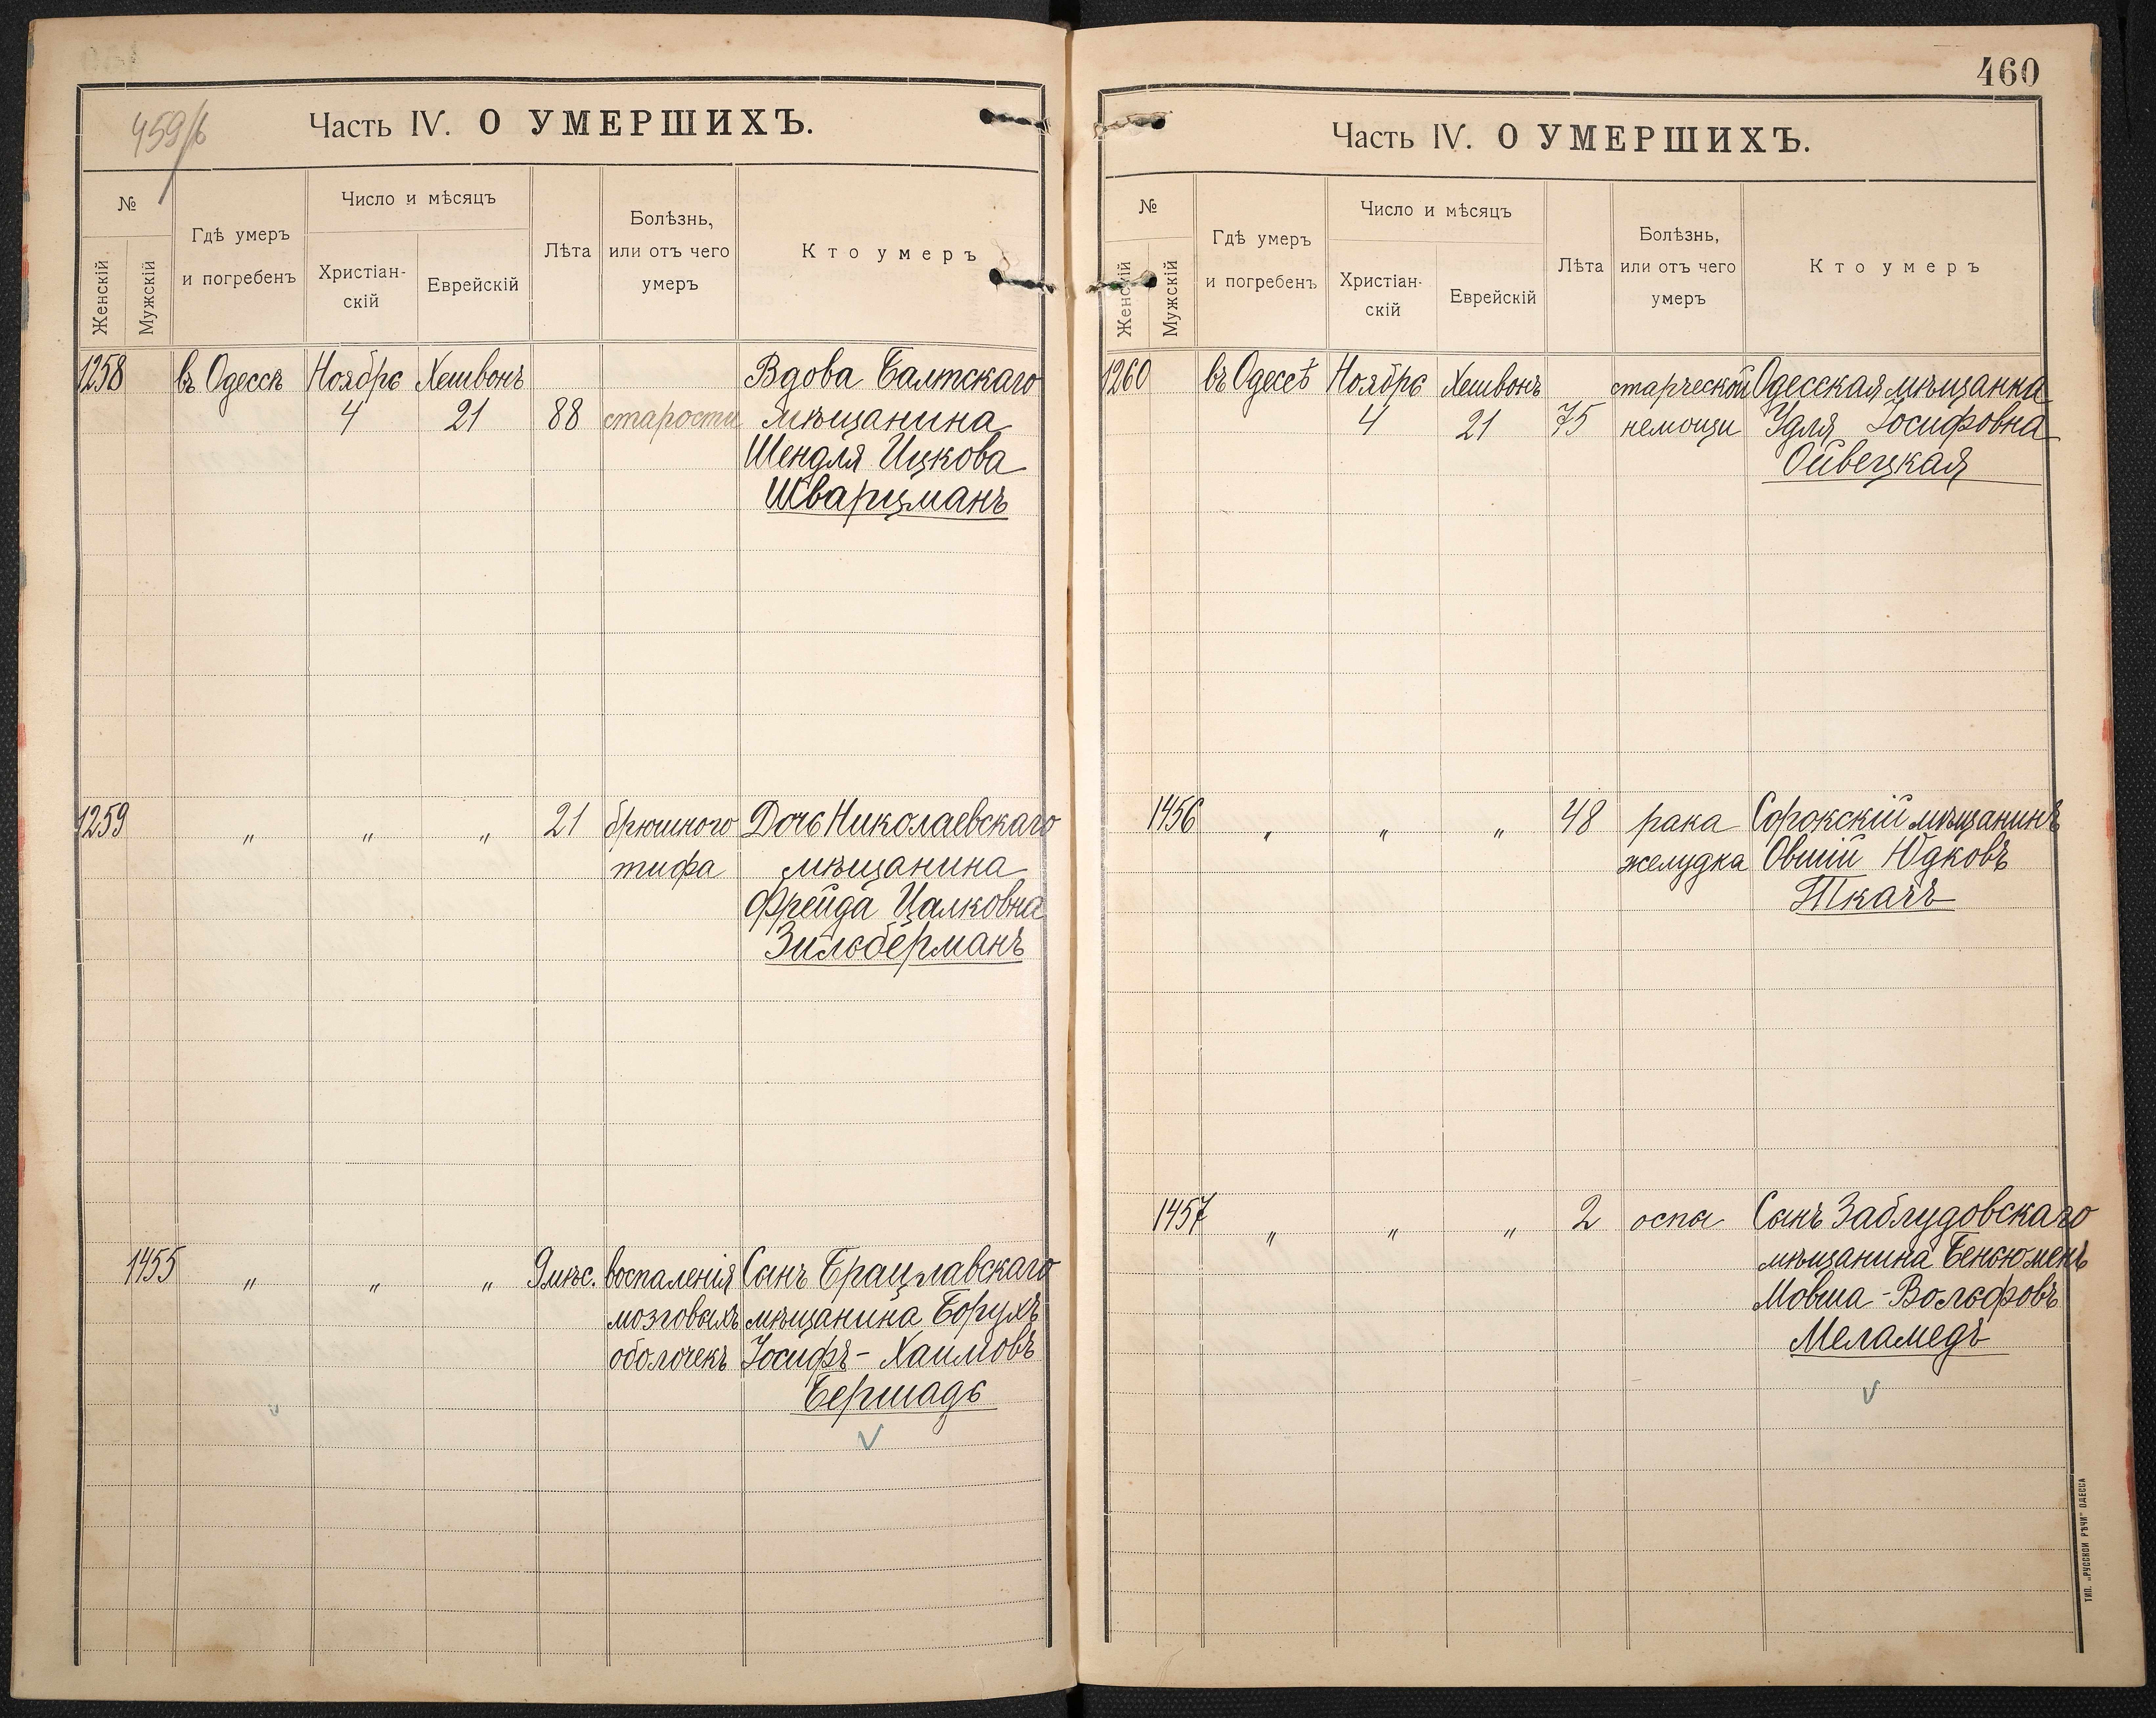 459/б
Часть IV. О УМЕРШИХЪ.
№
Женскій
Мужскій
Гдѣ умеръ
и погребенъ
Число и мѣсяцъ
Христіан-
скій
Еврейскій
Лѣта
Болѣзнь,
или отъ чего
умеръ
Кто умеръ
1258 въ Одессѣ Ноябрь Хешвонъ Вдова Балтскаго
4 21 88 старости мѣщанина
Шендля Ицкова
Шварцманъ
1259 „ „ „ 21 брюшного Дочь Николаевскаго
тифа мѣщанина
Фрейда Цалковна
Зильберманъ
1455 „ „ „ 9 мѣс. воспаленія Сынъ Брацлавскаго
мозговыхъ мѣщанина Борухъ
оболочекъ Іосифъ - Хаимовъ
Бершадь
V
460
Часть IV. О УМЕРШИХЪ.
№
Женскій
Мужскій
Гдѣ умеръ
и погребенъ
Число и мѣсяцъ
Христіан-
скій
Еврейскій
Лѣта
Болѣзнь,
или отъ чего
умеръ
Кто умеръ
1260 въ Одессѣ Ноябрь Хешвонъ старческой Одесская мѣщанка
4 21 75 немощи Удля Іосифовна
Ойвецкая
1456 „ „ „ 48 рака Сорокскій мѣщанинъ
желудка Овшій Юдковъ
Ткачъ
1457 „ „ „ 2 оспы Сынъ Заблудовскаго
мѣщанина Беньюменъ
Мовша - Вольфовъ
Меламедъ
V
ТИП. „РУССКОЙ РѢЧИ" ОДЕССА